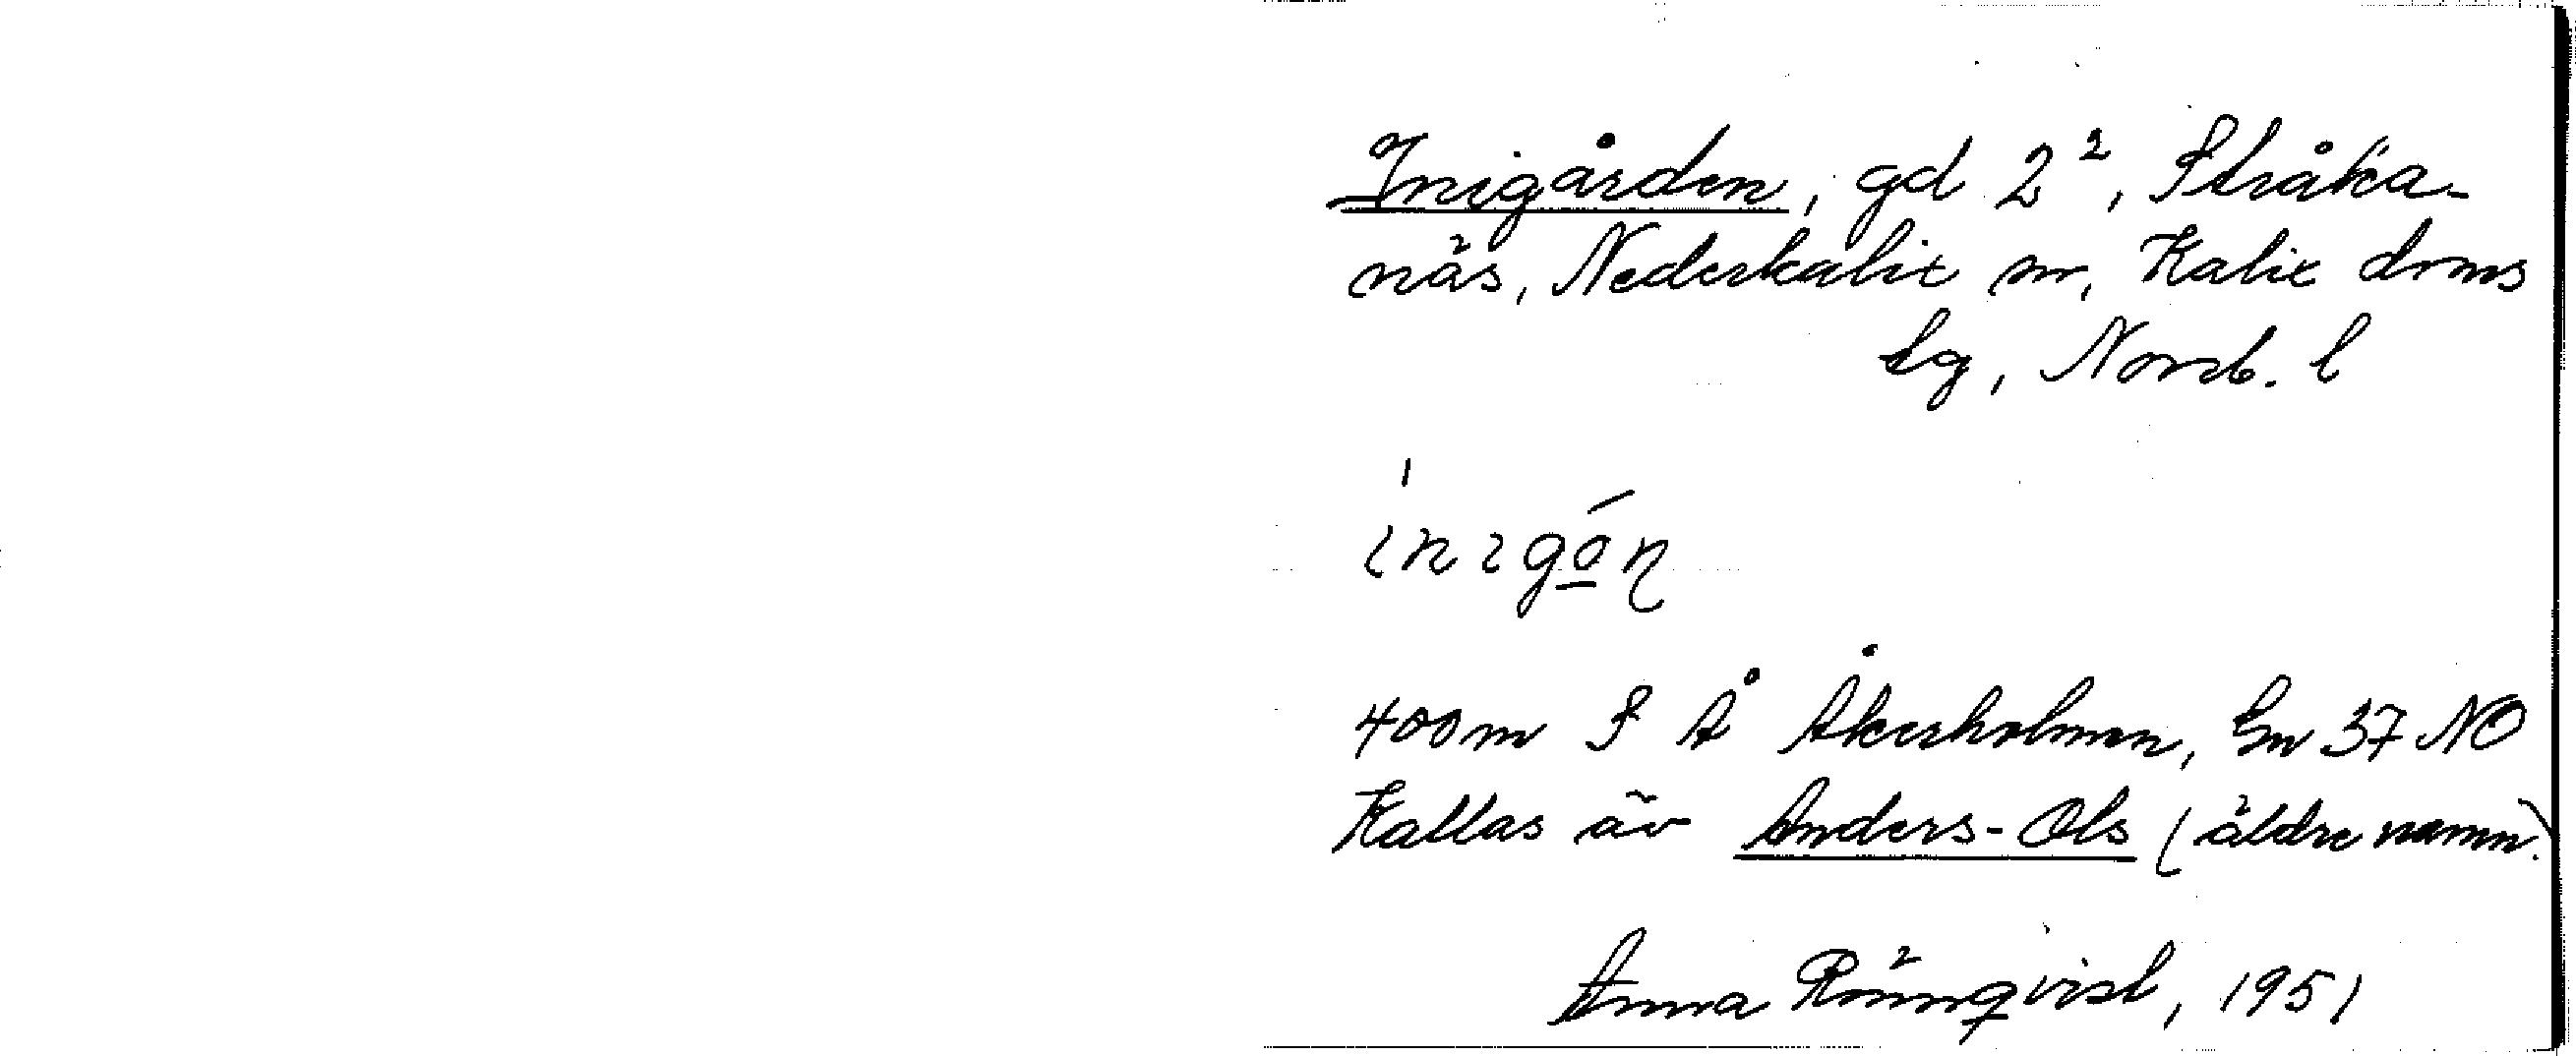 Inigården, gd 2², Stråka-
näs, Nederkalix sn, Kalix doms
sg, Norrb. l
inigón
400 m S Å Åkerholmen, Gn 37 NO
Kallas äv Anders-Ols (äldre namn.)
Anna Rönnqvist, 1951